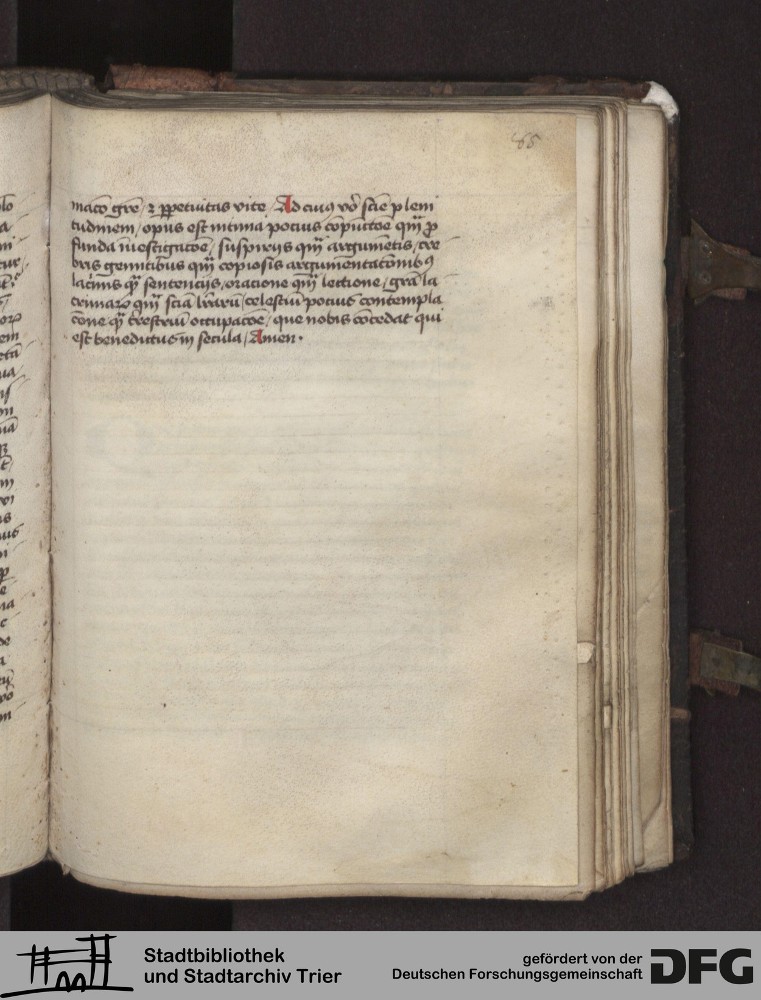 85
macō grē / ⁊ ꝑpetuitas vite / Ad cuiꝰ vō scīe pleni
tudinem / opus est intima pocius cōpūctōe qm̄ ꝓ
funda īuestigatōe / suspirijs qm̄ argumētis / cre
bris gemitibus qm̄ copiosis argumentatōnibꝯ
lacrīmis qm̄ sentencijs / oratione qm̄ lectione / grā la
crimarꝝ qm̄ scīā lr̄arū / celestiū pocius contempla
cōne qm̄ t̄restriū occupacōe / que nobis cōcedat qui
est benedictus in secula / Amen .
Stadtbibliothek
und Stadtarchiv Trier
gefördert von der
Deutschen Forschungsgemeinschaft
DFG